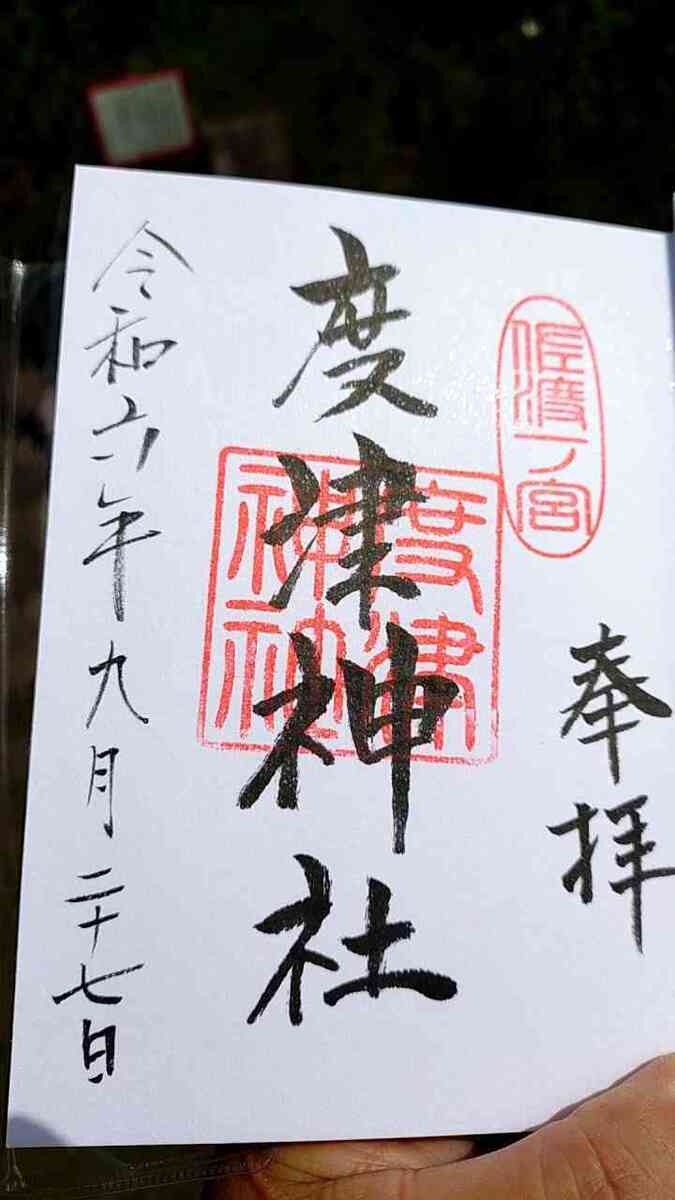 奉拝
佐渡一ノ宮
度津神社
度津
神社
令和六年九月二十七日